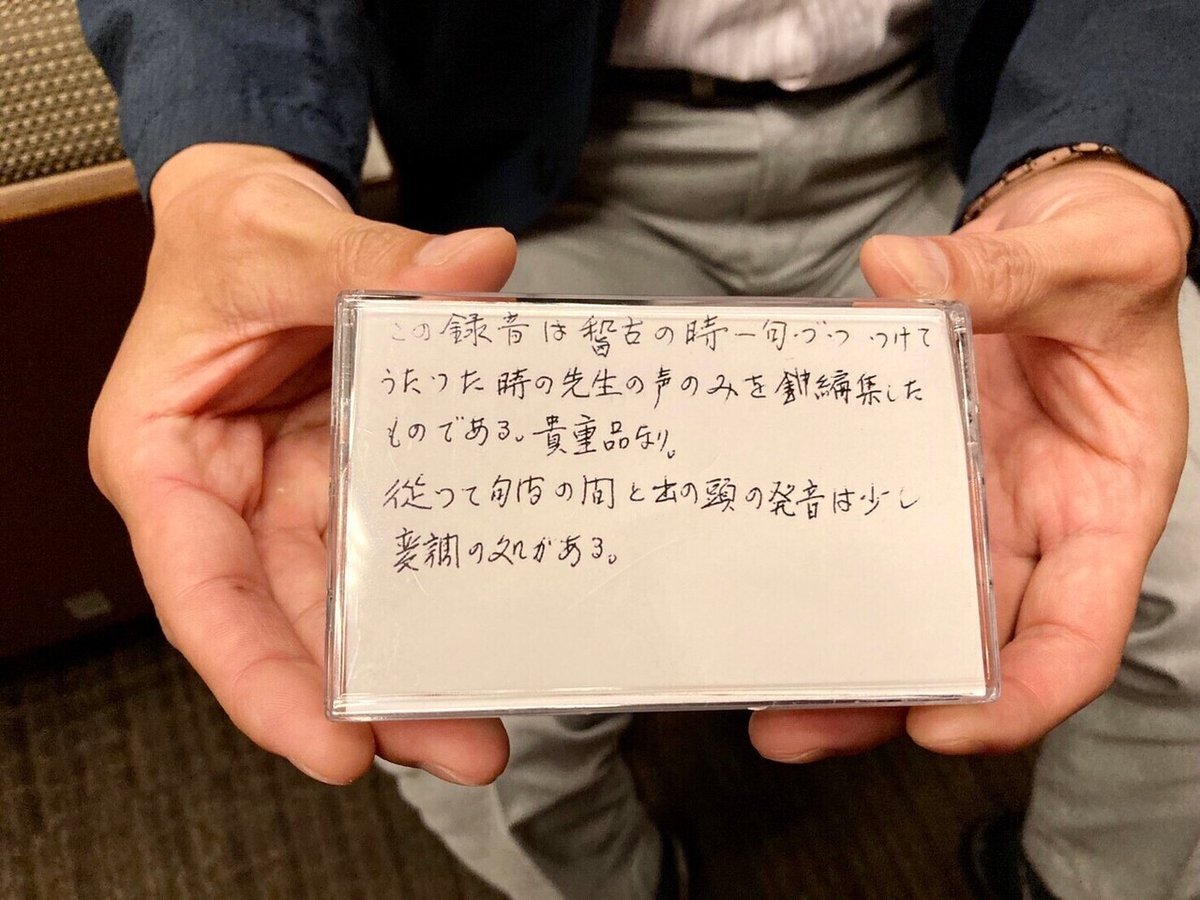 この録音は稽古の時一句づつ つけて
うたつた時の先生の声のみを 編集した
ものである。貴重品なり。
従つて句内の間と出の頭の発音は少し
変調の処がある。